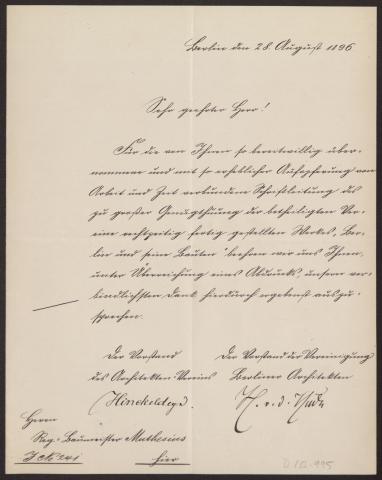 Berlin den 28. August 1896
Sehr geehrter Herr!
Für die von Ihnen so bereitwillig über-
nommene und mit so erheblicher Aufopferung von
Arbeit und Zeit verbundene Schriftleitung des
zu großer Genugthuung der betheiligten Ver-
eine rechtzeitig fertig gestellten Werkes, „Ber-
lin und seine Bauten" beehren wir uns Ihnen,
unter Überreichung eines Abdrucks, unsern ver-
bindlichsten Dank hierdurch ergebenst auszu-
sprechen.
Der Vorstand
des Architekten-Vereins
Hinckeldeyn
Der Vorstand der Vereinigung
Berliner Architekten
H. v. d. Hude
Herrn
Reg.-Baumeister Muthesius
J No 241
hier